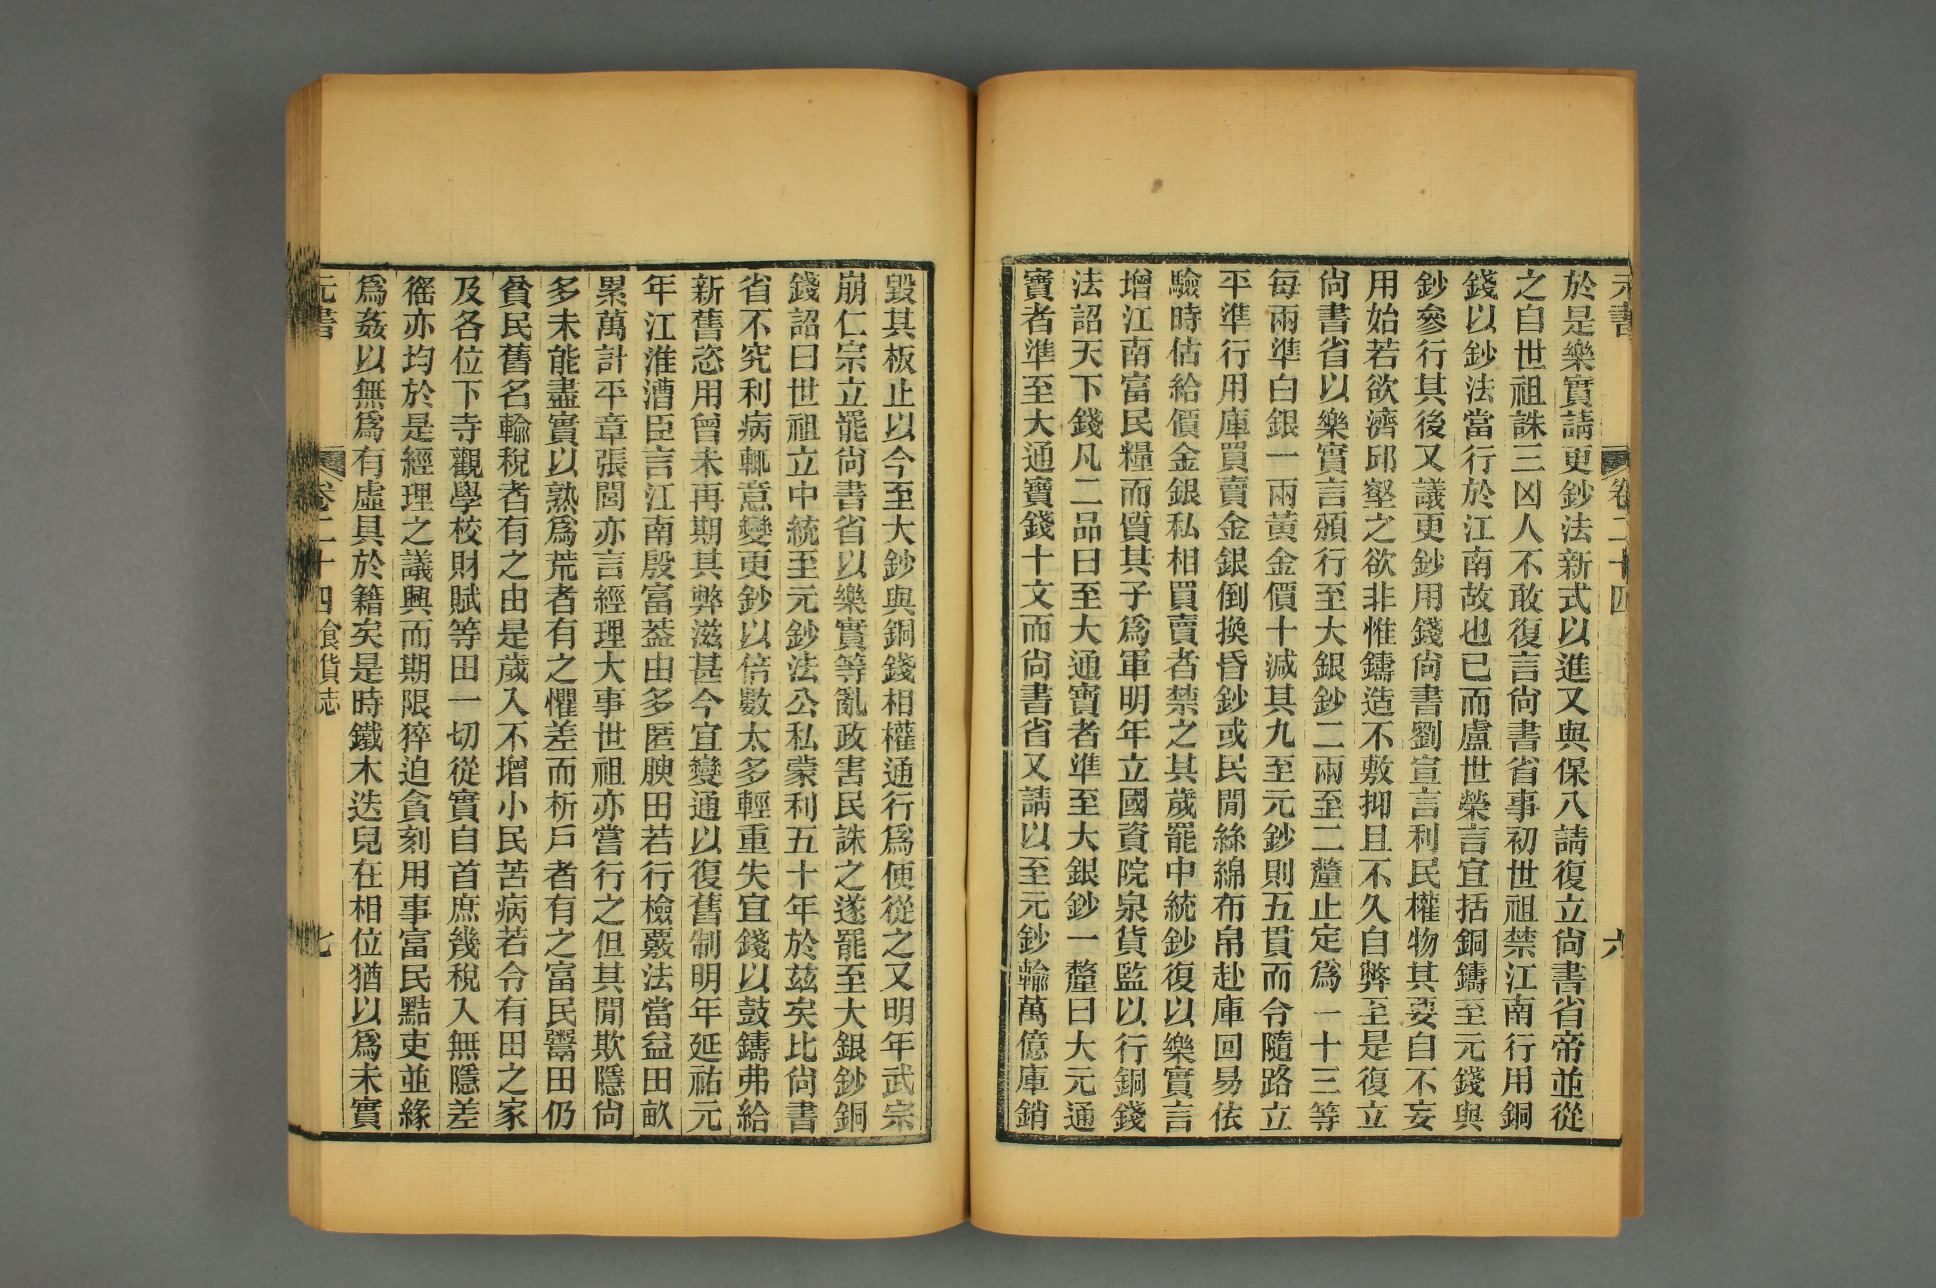 元書 卷二十四 六
於是樂實請更鈔法新式以進又與保八請復立尙書省帝並從
之自世祖誅三凶人不敢復言尙書省事初世祖禁江南行用銅
錢以鈔法當行於江南故也已而盧世榮言宜括銅鑄至元錢與
鈔參行其後又議更鈔用錢尙書劉宣言利民權物其要自不妄
用始若欲濟邱壑之欲非惟鑄造不敷抑且不久自弊至是復立
尙書省以樂實言頒行至大銀鈔二兩至二釐止定爲一十三等
每兩準白銀一兩黃金價十減其九至元鈔則五貫而令隨路立
平準行用庫買賣金銀倒換昏鈔或民閒絲綿布帛赴庫回易依
驗時估給價金銀私相買賣者禁之其歲罷中統鈔復以樂實言
增江南富民糧而質其子爲軍明年立國資院泉貨監以行銅錢
法詔天下錢凡二品曰至大通寶者準至大銀鈔一釐曰大元通
寶者準至大通寶錢十文而尙書省又請以至元鈔輸萬億庫銷
毀其板止以今至大鈔與銅錢相權通行爲便從之又明年武宗
崩仁宗立罷尙書省以樂實等亂政害民誅之遂罷至大銀鈔銅
錢詔曰世祖立中統至元鈔法公私蒙利五十年於茲矣比尙書
省不究利病輒意變更鈔以倍數太多輕重失宜錢以鼓鑄弗給
新舊恣用曾未再期其弊滋甚今宜變通以復舊制明年延祐元
年江淮漕臣言江南殷富葢由多匿腴田若行檢覈法當益田畝
累萬計平章張閭亦言經理大事世祖亦嘗行之但其閒欺隱尙
多未能盡實以熟爲荒者有之懼差而析戶者有之富民鬻田仍
貧民舊名輸稅者有之由是歲入不增小民苦病若令有田之家
及各位下寺觀學校財賦等田一切從實自首庶幾稅入無隱差
徭亦均於是經理之議興而期限猝迫貪刻用事富民黠吏並緣
爲姦以無爲有虛具於籍矣是時鐵木迭兒在相位猶以爲未實
元書 卷二十四 食貨志 七